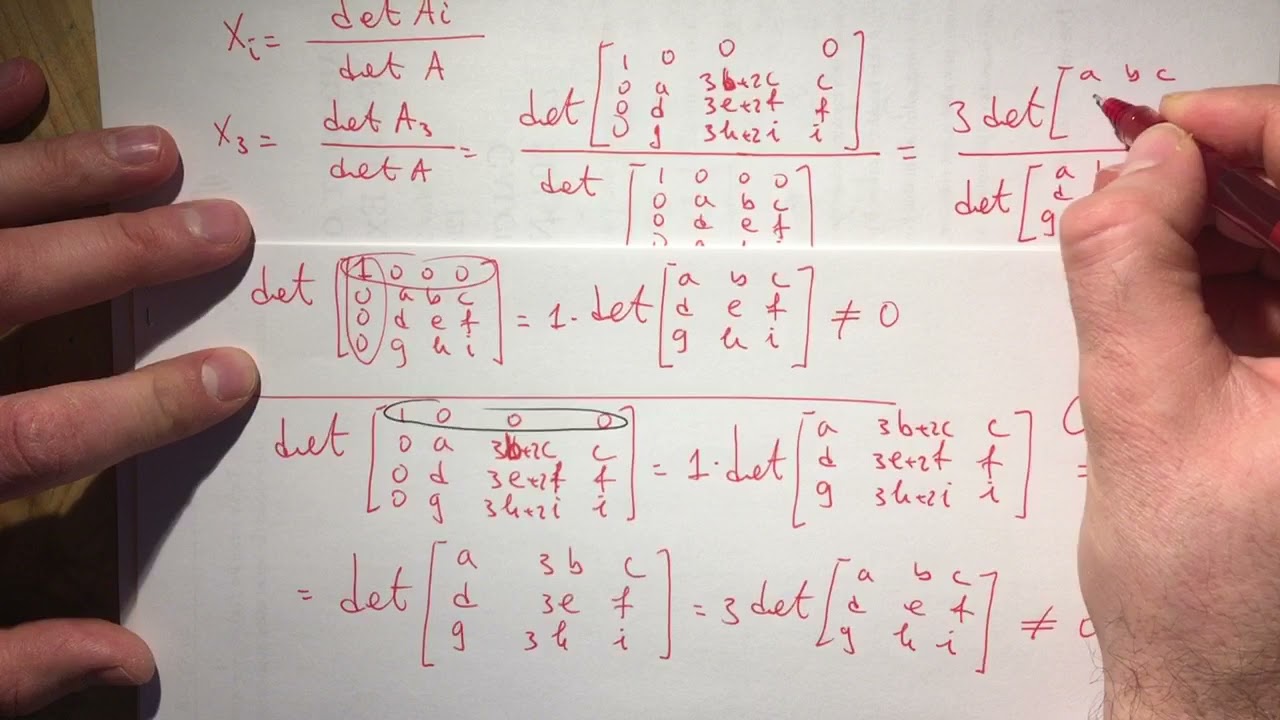 Xi = det Ai / det A
X3 = det A3 / det A = det [ 1 0 0 0 / det [ 1 0 0 0 = 3 det [ a b c / det [ a
0 a 3b+2c c
0 d 3e+2f f
0 g 3h+2i i ]
0 a b c
0 d e f ]
d
g
det [ 1 0 0 0
0 a b c
0 d e f
0 g h i ] = 1 · det [ a b c
d e f
g h i ] ≠ 0
det [ 1 0 0 0
0 a 3b+2c c
0 d 3e+2f f
0 g 3h+2i i ] = 1 · det [ a 3b+2c c
d 3e+2f f
g 3h+2i i ] =
= det [ a 3b c
d 3e f
g 3h i ] = 3 det [ a b c
d e f
g h i ] ≠